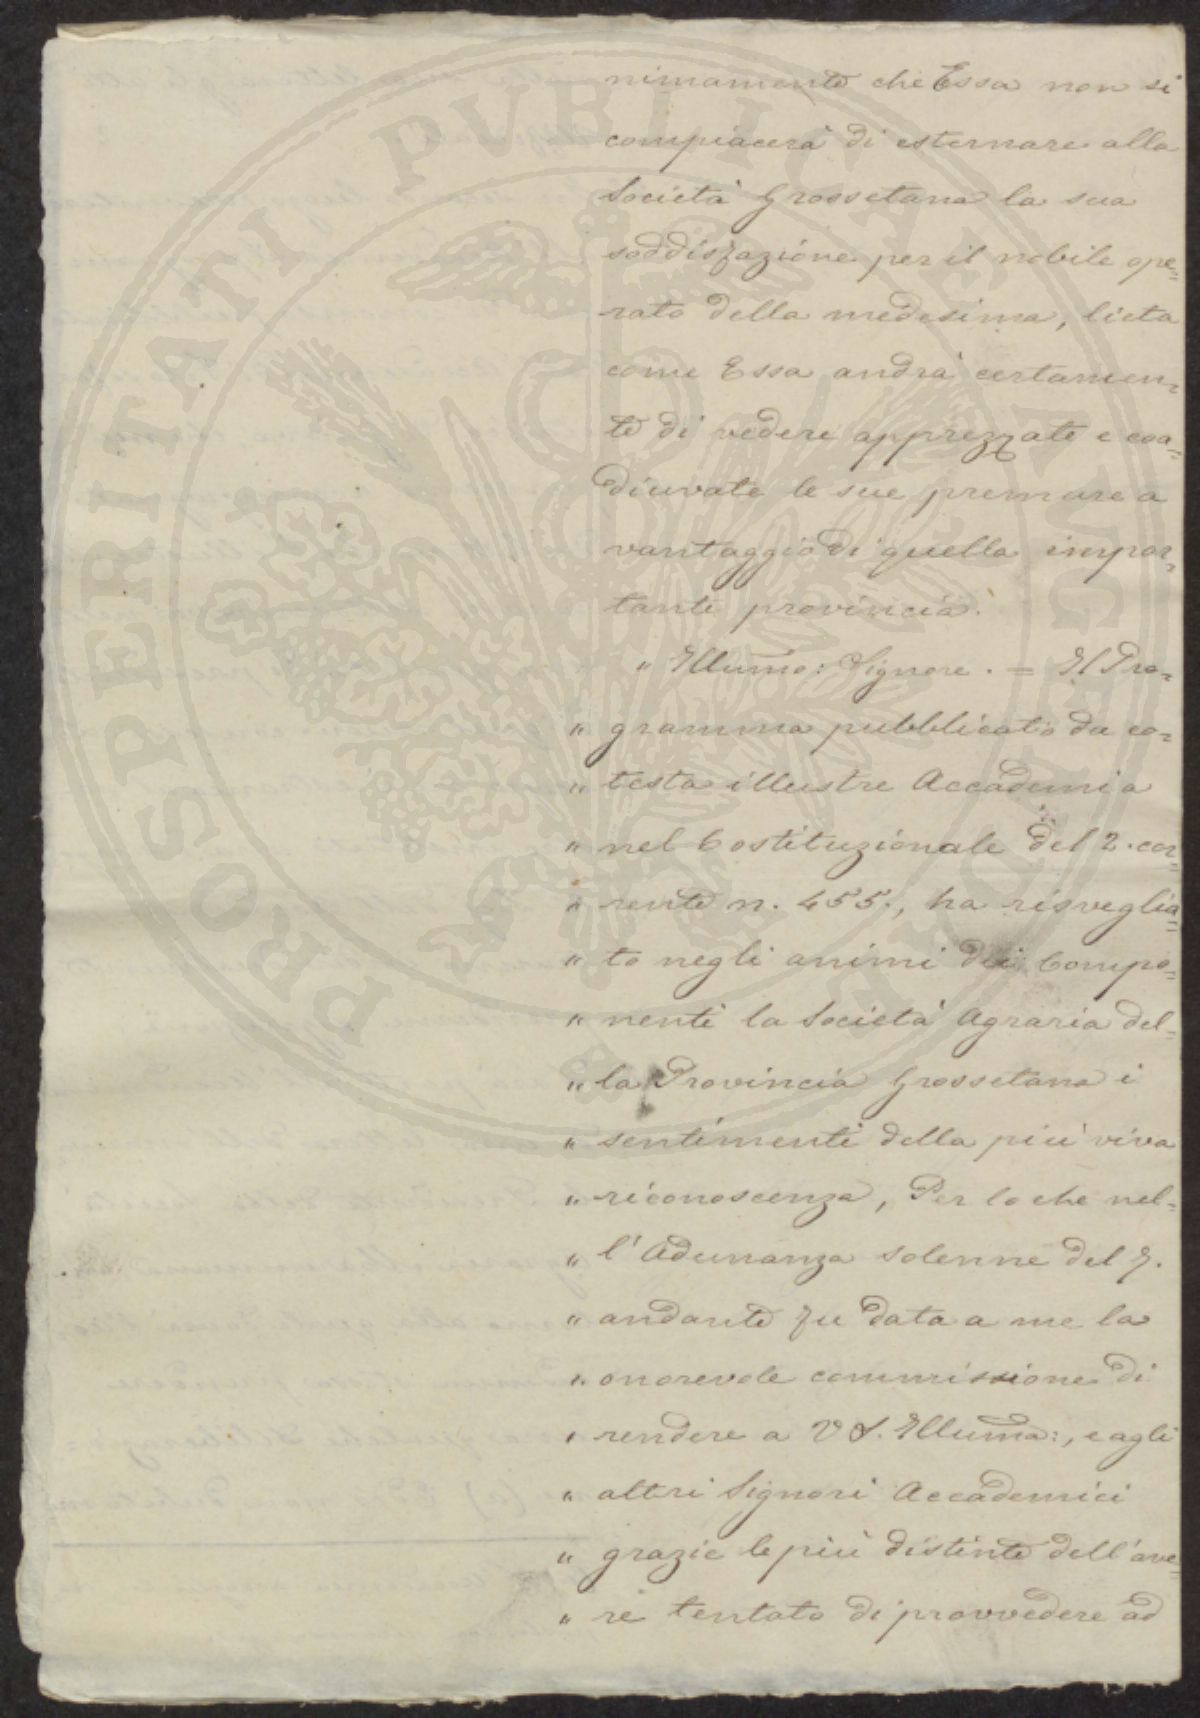 nimamente che Essa non si
compiacerà di esternare alla
Società Grossetana la sua
soddisfazione per il nobile ope=
rato della medesima, lieta
come Essa andrà certamen=
te di vedere apprezzate e coa=
diuvate le sue premure a
vantaggio di quella impor=
tante provincia.
" Illumo: Signore. = Il Pro=
" gramma pubblicato da co=
" testa illustre Accademia
" nel Costituzionale del 2. cor=
" rente n. 455., ha risveglia=
" to negli animi dei Compo=
" nenti la Società Agraria del=
" la Provincia Grossetana i
" sentimenti della più viva
" riconoscenza, Per lo che nel=
" l'Adunanza solenne del 7.
" andante fu data a me la
" onorevole commissione di
" rendere a V S. Illuma:, e agli
" altri Signori Accademici
" grazie le più distinte dell'ave=
" re tentato di provvedere ad
PROSPERITATI PUBLICAE AUGENDAE